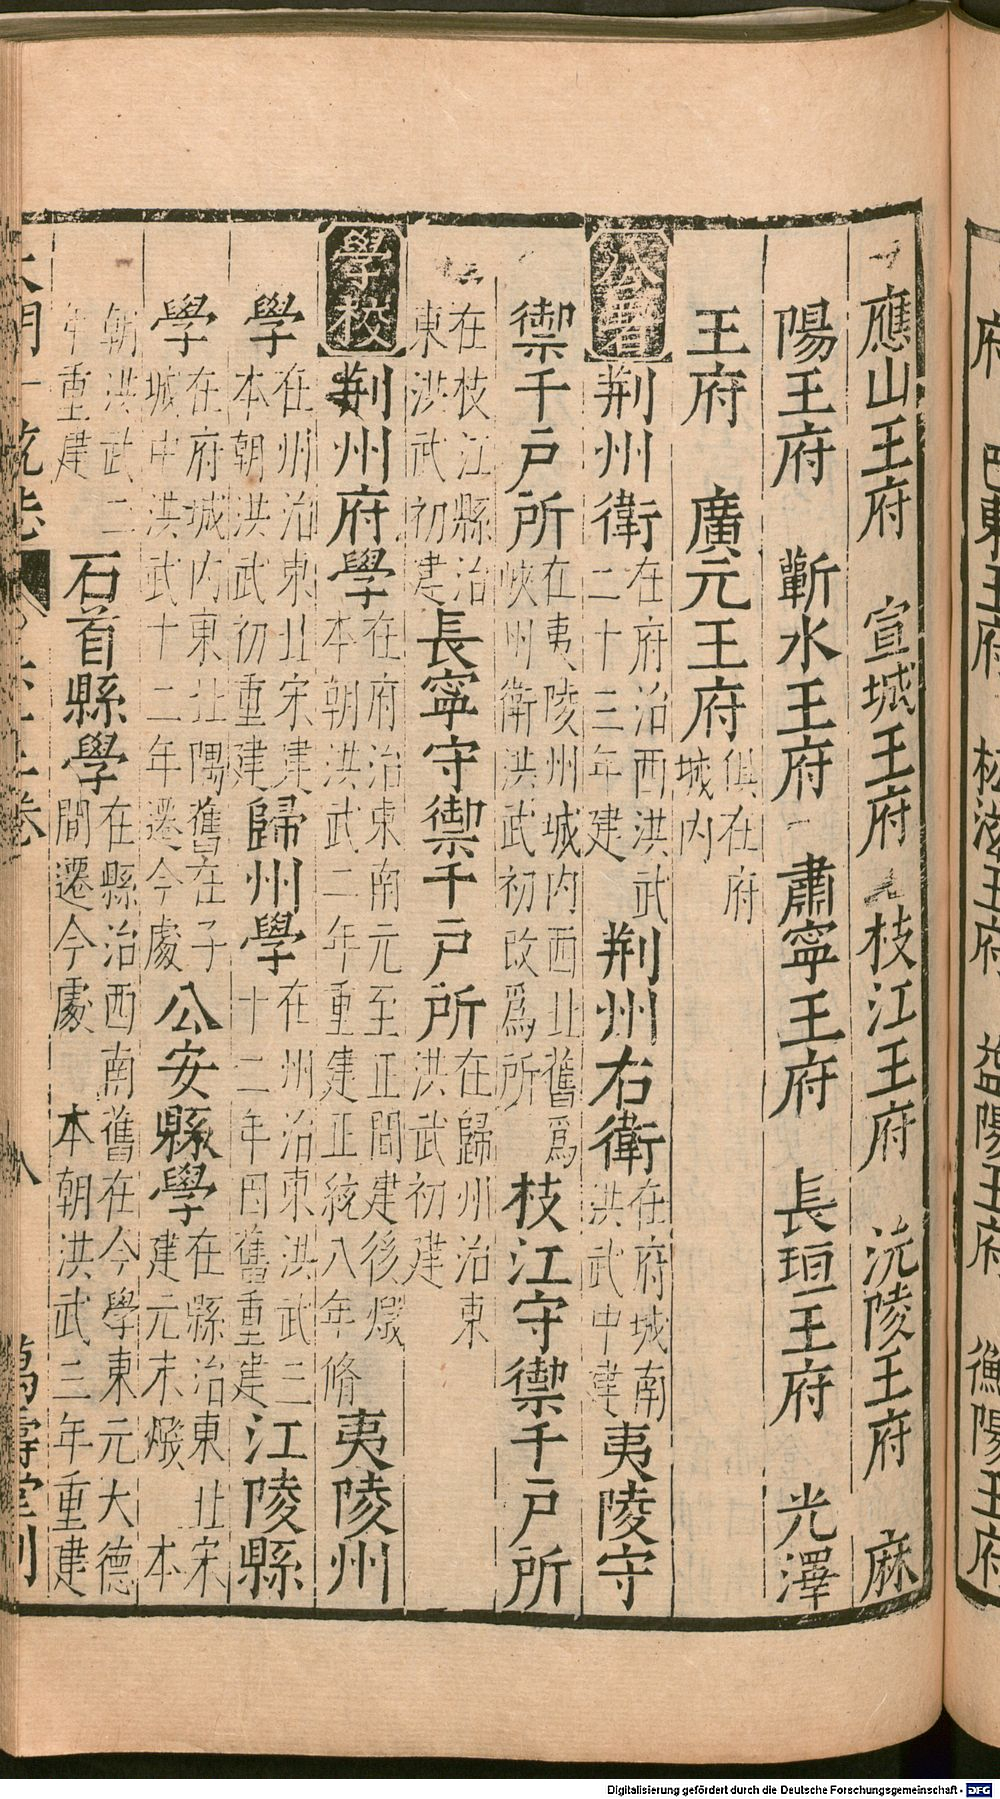 府　巴東王府　松滋王府　益陽王府　衡陽王府
應山王府　宣城王府　枝江王府　沅陵王府　麻
陽王府　蘄水王府　肅寧王府　長垣王府　光澤
王府　廣元王府俱在府城内
公署荆州衛在府治西洪武二十三年建荆州右衛在府城南洪武中建夷陵守
禦千戶所在夷陵州城内西北舊爲峽州衛洪武初改爲所枝江守禦千戶所
在枝江縣治東洪武初建長寧守禦千戶所在歸州治東洪武初建
學校荆州府學在府治東南元至正間建後燬本朝洪武二年重建正統八年脩夷陵州
學在州治東北宋建本朝洪武初重建歸州學在州治東洪武三十二年因舊重建江陵縣
學在府城内東北隅舊在子城中洪武十二年遷今處公安縣學在縣治東北宋建元末燬　本
朝洪武二年重建石首縣學在縣治西南舊在今學東元大德間遷今處　本朝洪武三年重建
大明一統志　卷　八　萬壽堂刊
Digitalisierung gefördert durch die Deutsche Forschungsgemeinschaft - DFG